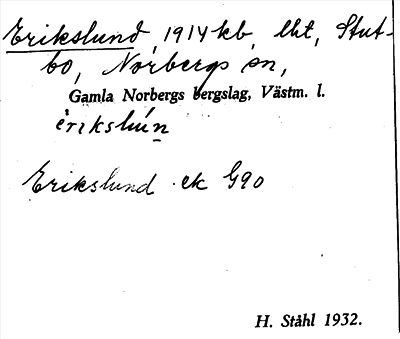 Erikslund, 1914 kb, lht, Stut-
bo, Norbergs sn,
Gamla Norbergs bergslag, Västm. l.
èrikslún
Erikslund ek G90
H. Ståhl 1932.